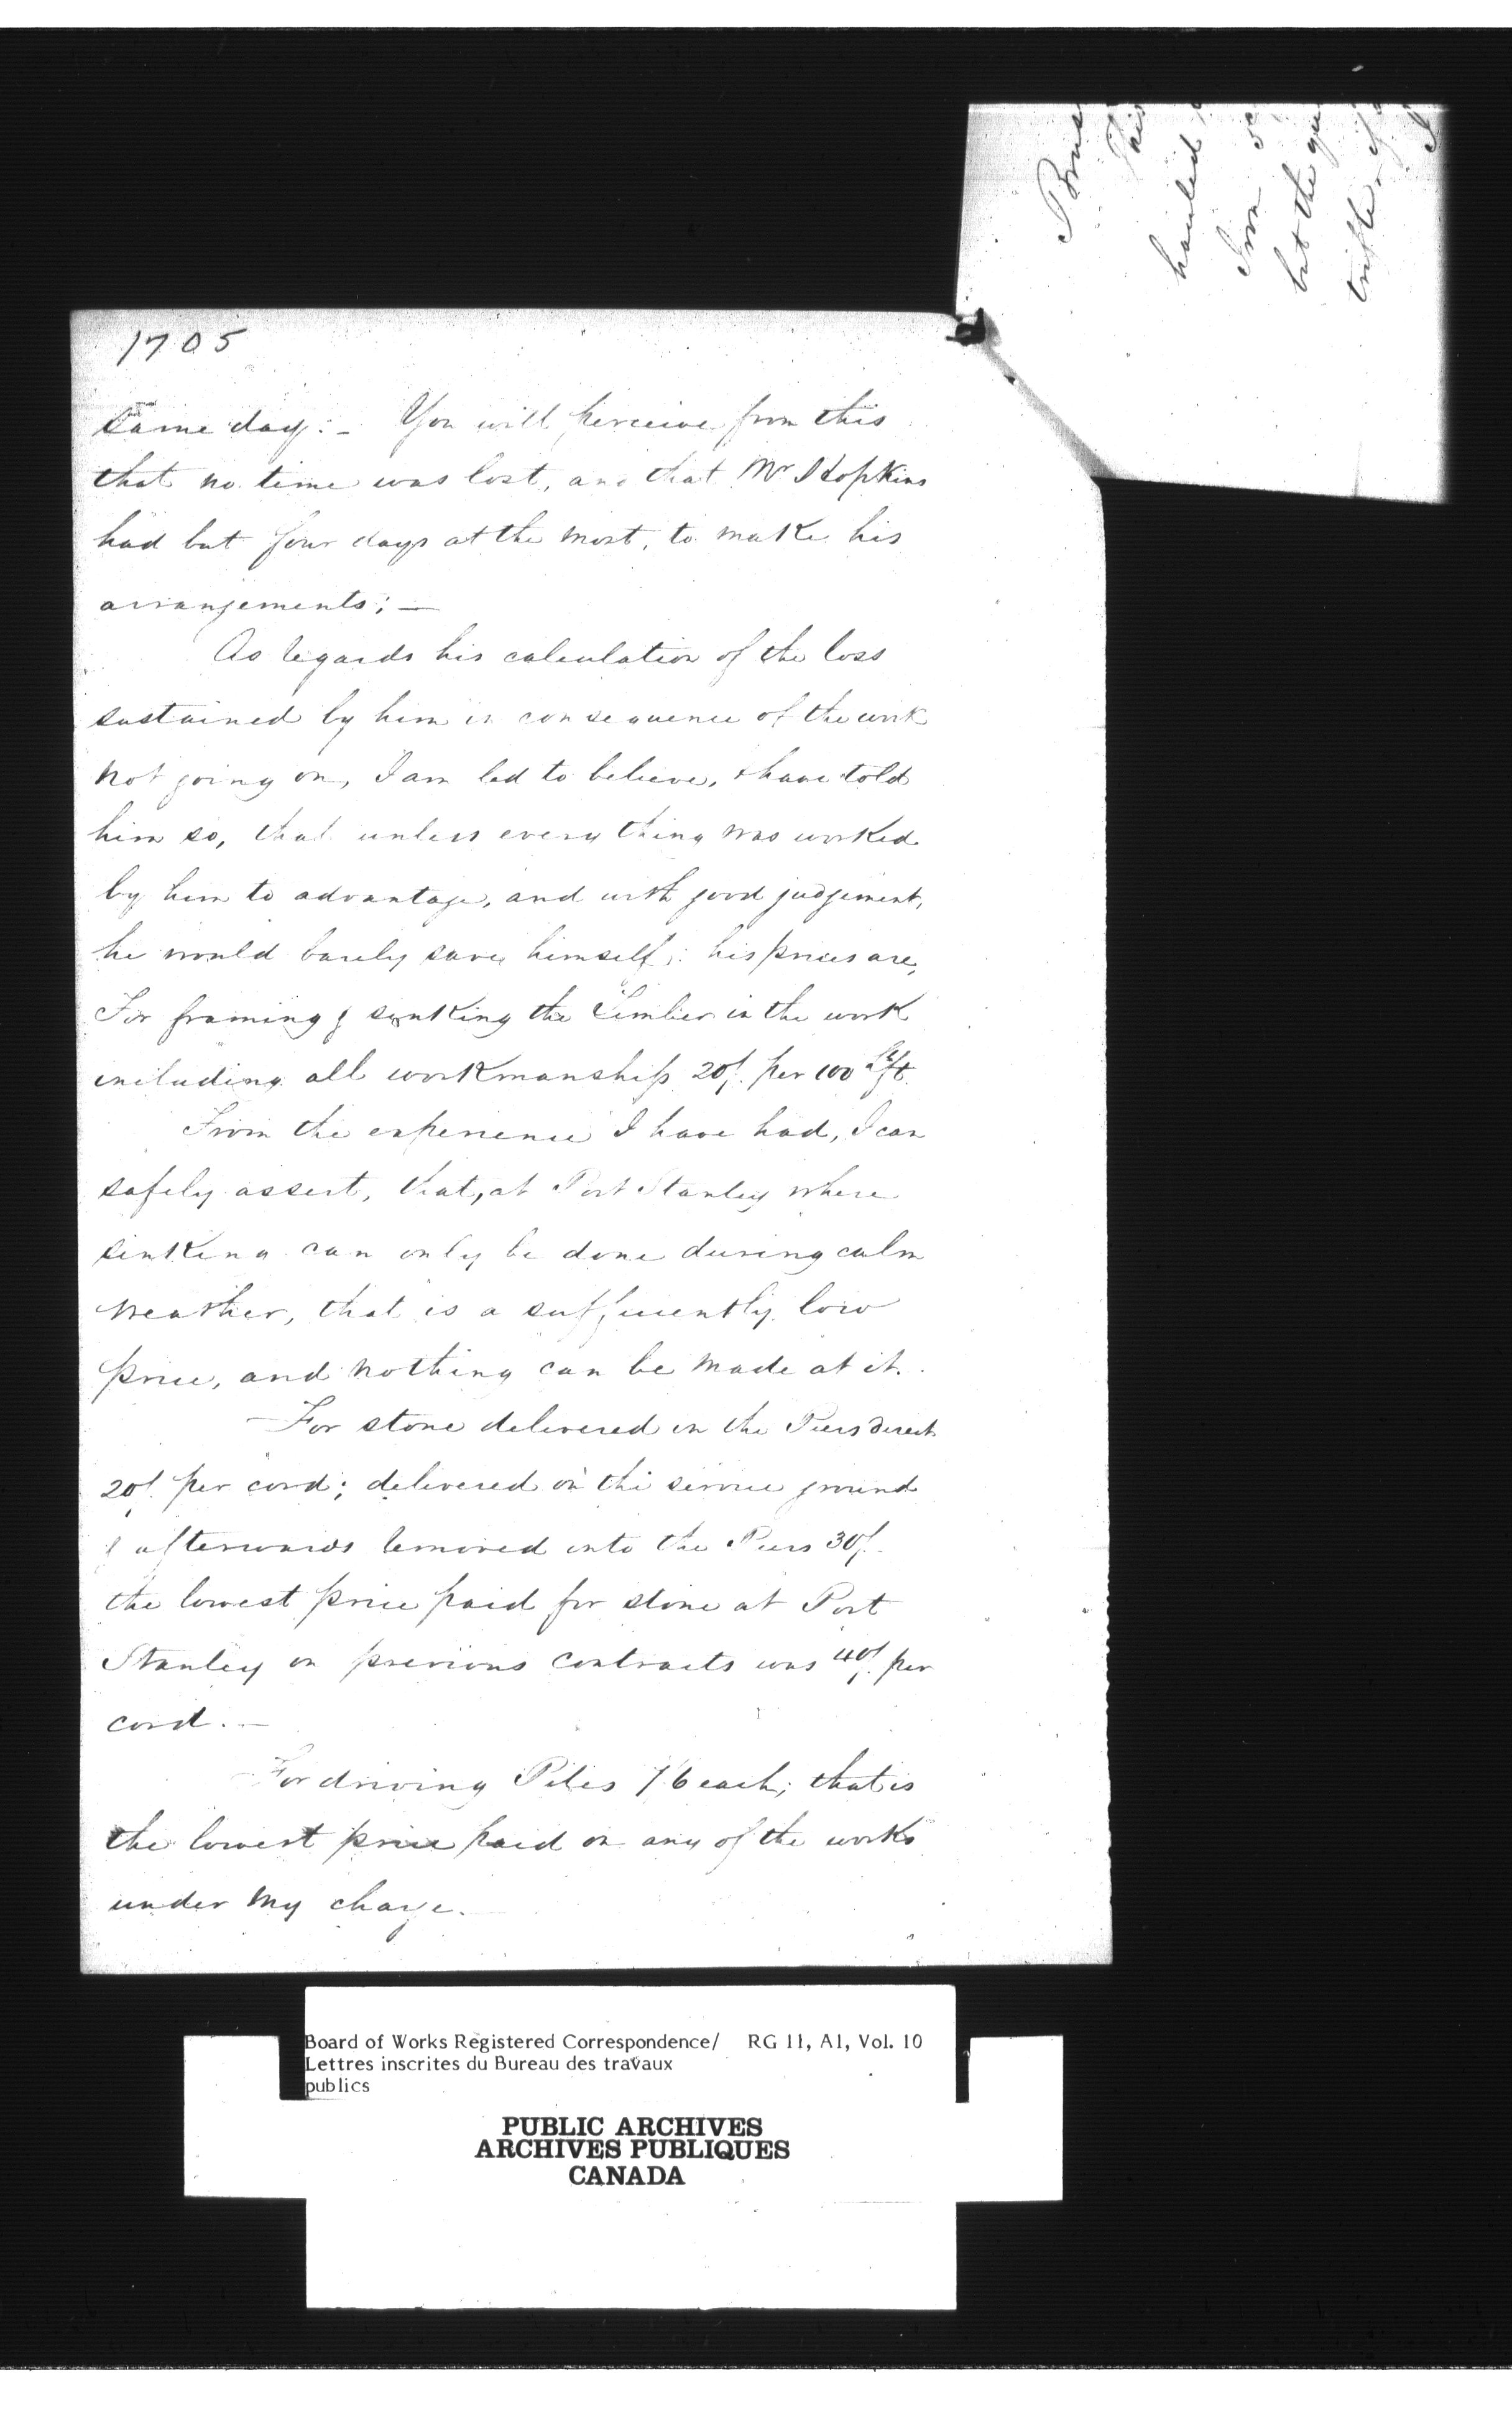 1705
same day:- You will perceive from this
that no time was lost, and that Mr Hopkins
had but four days at the most, to make his
arrangements; -
As regards his calculation of the loss
sustained by him in consequence of the work
not going on, I am led to believe, & have told
him so, that unless every thing was worked
by him to advantage, and with good judgement,
he would barely save himself; his prices are,
For framing & sinking the timber in the work
including all workmanship 20/. per 100 ft.
From the experience I have had, I can
safely assert, that, at Port Stanley where
sinking can only be done during calm
weather, that is a sufficiently low
price, and nothing can be made at it.
For stone delivered in the Piers direct
20/. per cord; delivered on the service ground
& afterwards removed into the Piers 30/.
the lowest price paid for stone at Port
Stanley on previous contracts was 40/. per
cord. -
For driving Piles 7/6 each; that is
the lowest price paid on any of the works
under my charge.
hauled
Iron
but the
trifle, if
I
Board of Works Registered Correspondence/ RG 11, A1, Vol. 10
Lettres inscrites du Bureau des travaux
publics
PUBLIC ARCHIVES
ARCHIVES PUBLIQUES
CANADA